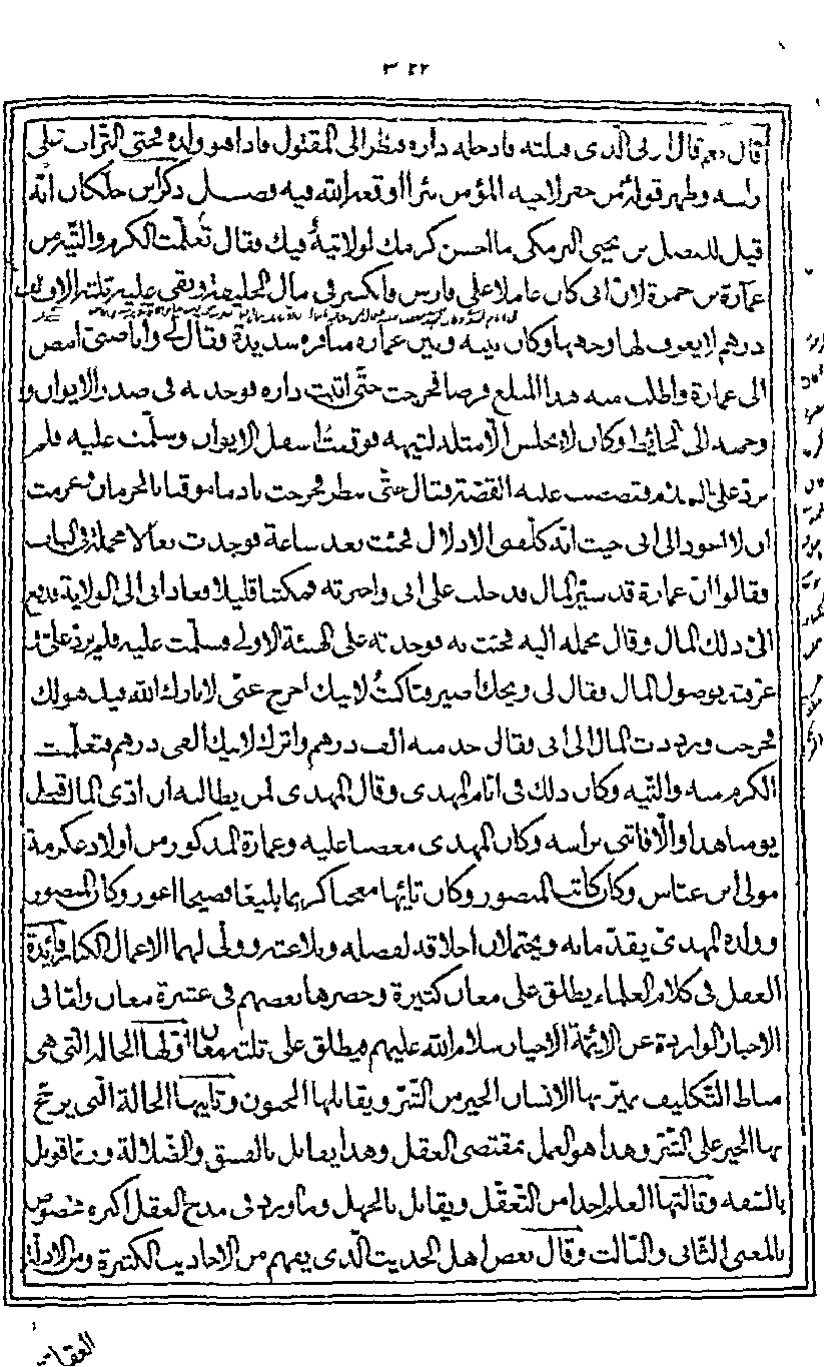 ٣٢٢
قال نعم قال ارني الذي قتلته فادخله داره فنظر الى المقتول فاذا هو ولده فحثى التراب على
راسه وظهر قوله من حفر لاخيه المؤمن بئرا اوقعه الله فيه فصل ذكر ابن خلكان انه
قيل للفضل بن يحيى البرمكي ما احسن كرمك لولا تيه فيك فقال تعلمت الكرم والتيه من
عمارة بن حمزة لان ابي كان عاملا على فارس وانكسر في مال الخليفة وبقي عليه ثلثه الاف الف
درهم لا يعرف لها وجها وكان بينه وبين عمارة منافرة شديدة فقال لي وانا صبي امض
الى عمارة واطلب منه هذا المبلغ قرضا فخرجت حتى اتيت داره فوجدته في صدر الايوان و
وجهه الى الحائط وكان لا يجلس الا مثله لتيهه فوقفت اسفل الايوان وسلمت عليه فلم
يرد على السلام فقصصت عليه القصة فقال حتى ننظر فخرجت نادما موقنا بالحرمان فعزمت
ان لا اعود الى ابي حيث انه كلفني الاذلال فجئت بعد ساعة فوجدت بغالا محملة في الباب
فقالوا ان عمارة قد سير المال فدخلت على ابي واخبرته فمكثنا قليلا فعاد ابي الى الولاية فدفع
الي ذلك المال وقال تحمله اليه فجئت به فوجدته على الهيئة الاولى وسلمت عليه فلم يرد علي و
عرفته بوصول المال فقال لي ويحك اصيرفيا كنت لابيك اخرج عني لا بارك الله فيك هو لك
فخرجت ورددت المال الى ابي فقال خذ منه الف درهم واترك لابيك الفي درهم فتعلمت
الكرم منه والتيه وكان ذلك في ايام المهدي وقال المهدي لمن يطالبه ان ادى المال قبل
يومنا هذا والا فاتني براسه وكان المهدي مغضبا عليه وعمارة المذكور من اولاد عكرمة
مولى ابن عباس وكان كاتب المنصور وكان تايها معجبا كريما بليغا فصيحا اعور وكان المنصور
وولده المهدي يقدمانه ويحتملان اخلاقه لفضله وبلاغته وولي لهما الاعمال الكبار فائدة
العقل في كلام العلماء يطلق على معان كثيرة وحصرها بعضهم في عشرة معان واما في
الاخبار الواردة عن الائمة الاخيار سلام الله عليهم فيطلق على ثلثه معان اولها الحالة التي هي
مناط التكليف يميز بها الانسان الخير من الشر ويقابلها الجنون وثانيها الحالة التي يرجح
بها الخير على الشر وهذا هو العمل بمقتضى العقل وهذا يقابل بالفسق والضلالة وربما قوبل
بالسفه وثالثها العلم اخذا من التعقل ويقابل بالجهل وما ورد في مدح العقل اكثره مخصوص
بالمعنى الثاني والثالث وقال بعض اهل الحديث الذي يفهم من الاحاديث الكثيرة ومن الادلة
العقلية